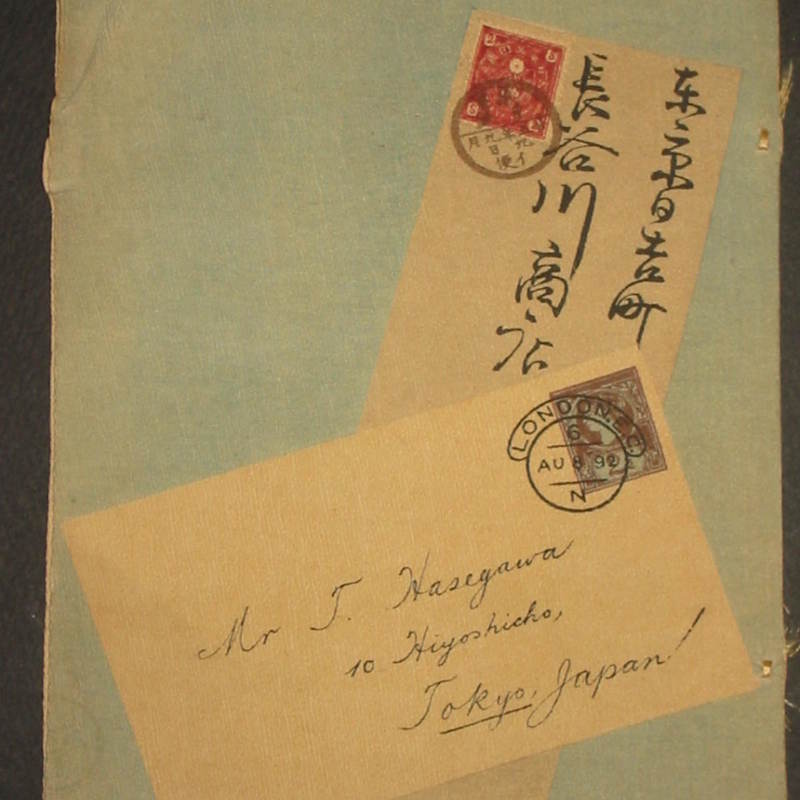 东京日吉町
長谷川商店
LONDON.E.C.
6
AU 8 92
N
Mr T. Hasegawa
10 Hiyoshicho,
Tokyo, Japan